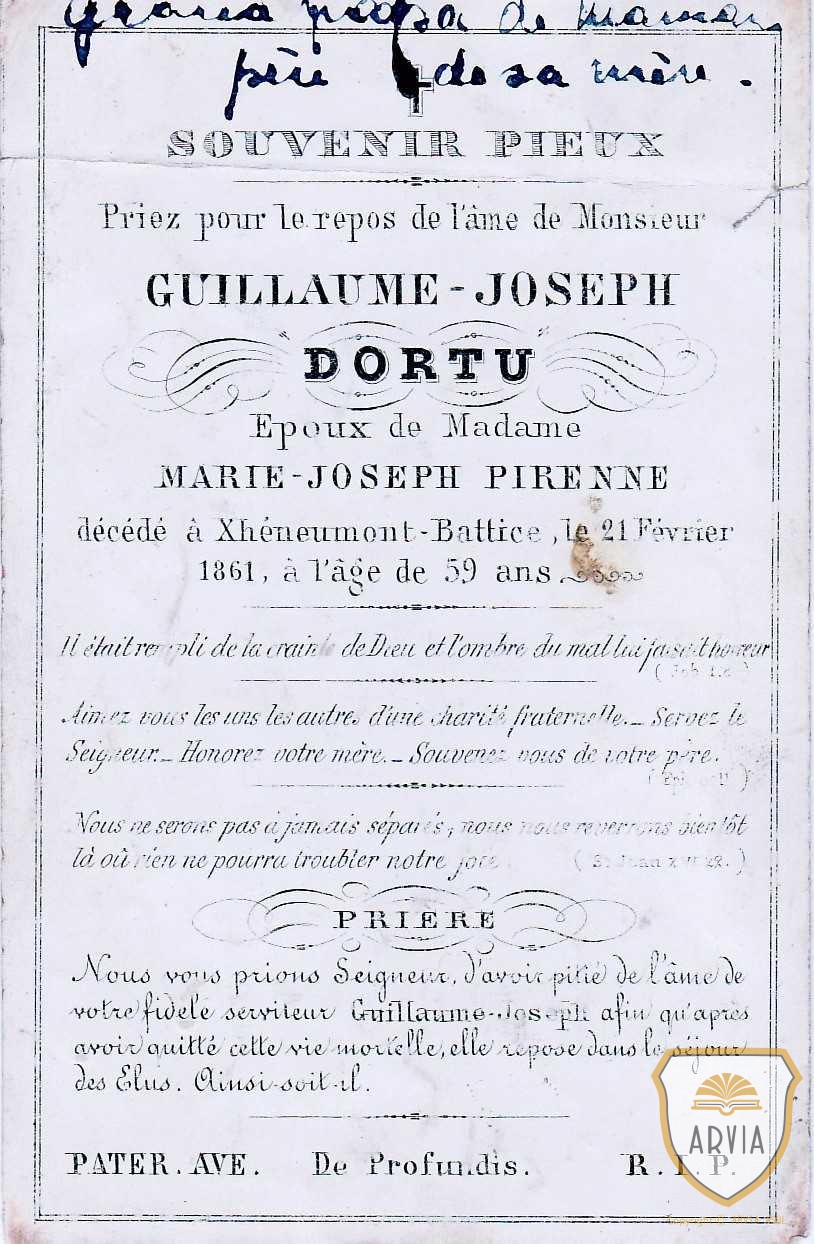 grand papa de Maman
père de sa mère.
SOUVENIR PIEUX
Priez pour le repos de l'âme de Monsieur
GUILLAUME-JOSEPH
DORTU
Epoux de Madame
MARIE-JOSEPH PIRENNE
décédé à Xhéneumont-Battice, le 21 Février
1861, à l'âge de 59 ans
Il était rempli de la crainte de Dieu et l'ombre du mal lui faisait horreur
(Job
Aimez vous les uns les autres d'une charité fraternelle. _ Servez le
Seigneur. _ Honorez votre mère. _ Souvenez vous de votre père.
Nous ne serons pas à jamais séparés, nous nous reverrons bientôt
là où rien ne pourra troubler notre joie (S. Jean
PRIÈRE
Nous vous prions Seigneur, d'avoir pitié de l'âme de
votre fidèle serviteur Guillaume-Joseph afin qu'après
avoir quitté cette vie mortelle, elle repose dans le séjour
des Elus. Ainsi-soit-il.
PATER. AVE. De Profundis. R. I. P.
ARVIA